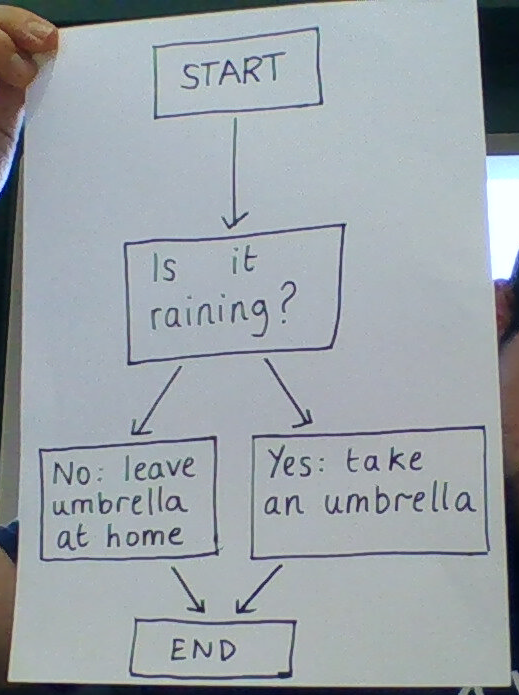 START
Is it
raining?
No: leave
umbrella
at home
Yes: take
an umbrella
END